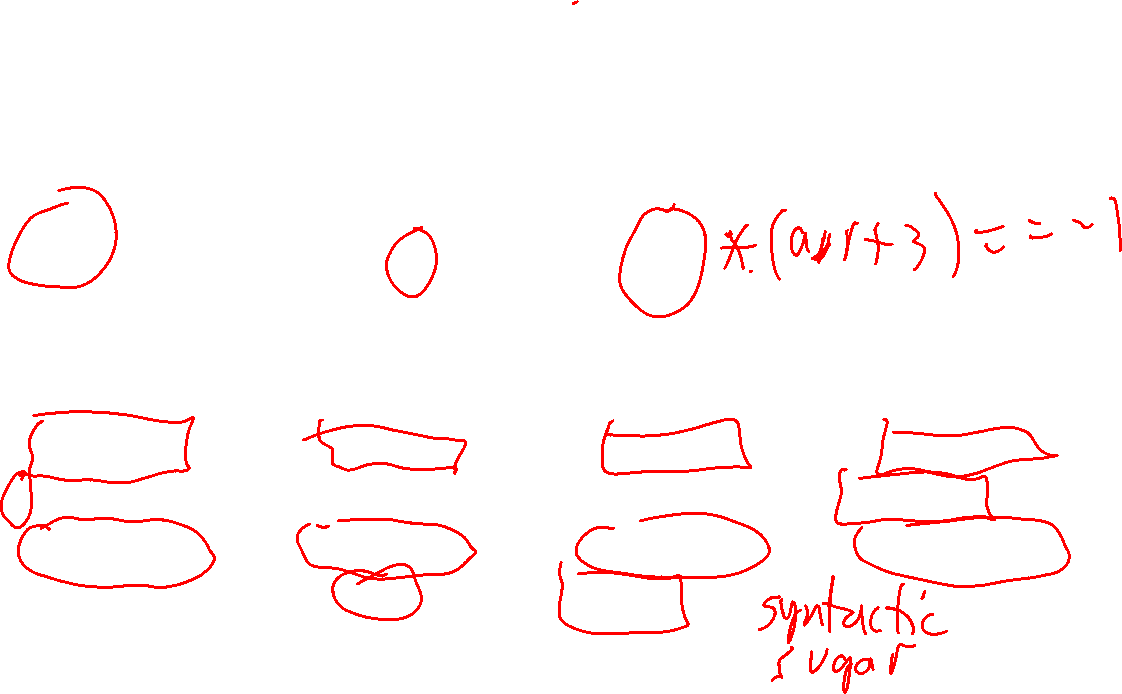 *(arr+3) == -1
syntactic
sugar